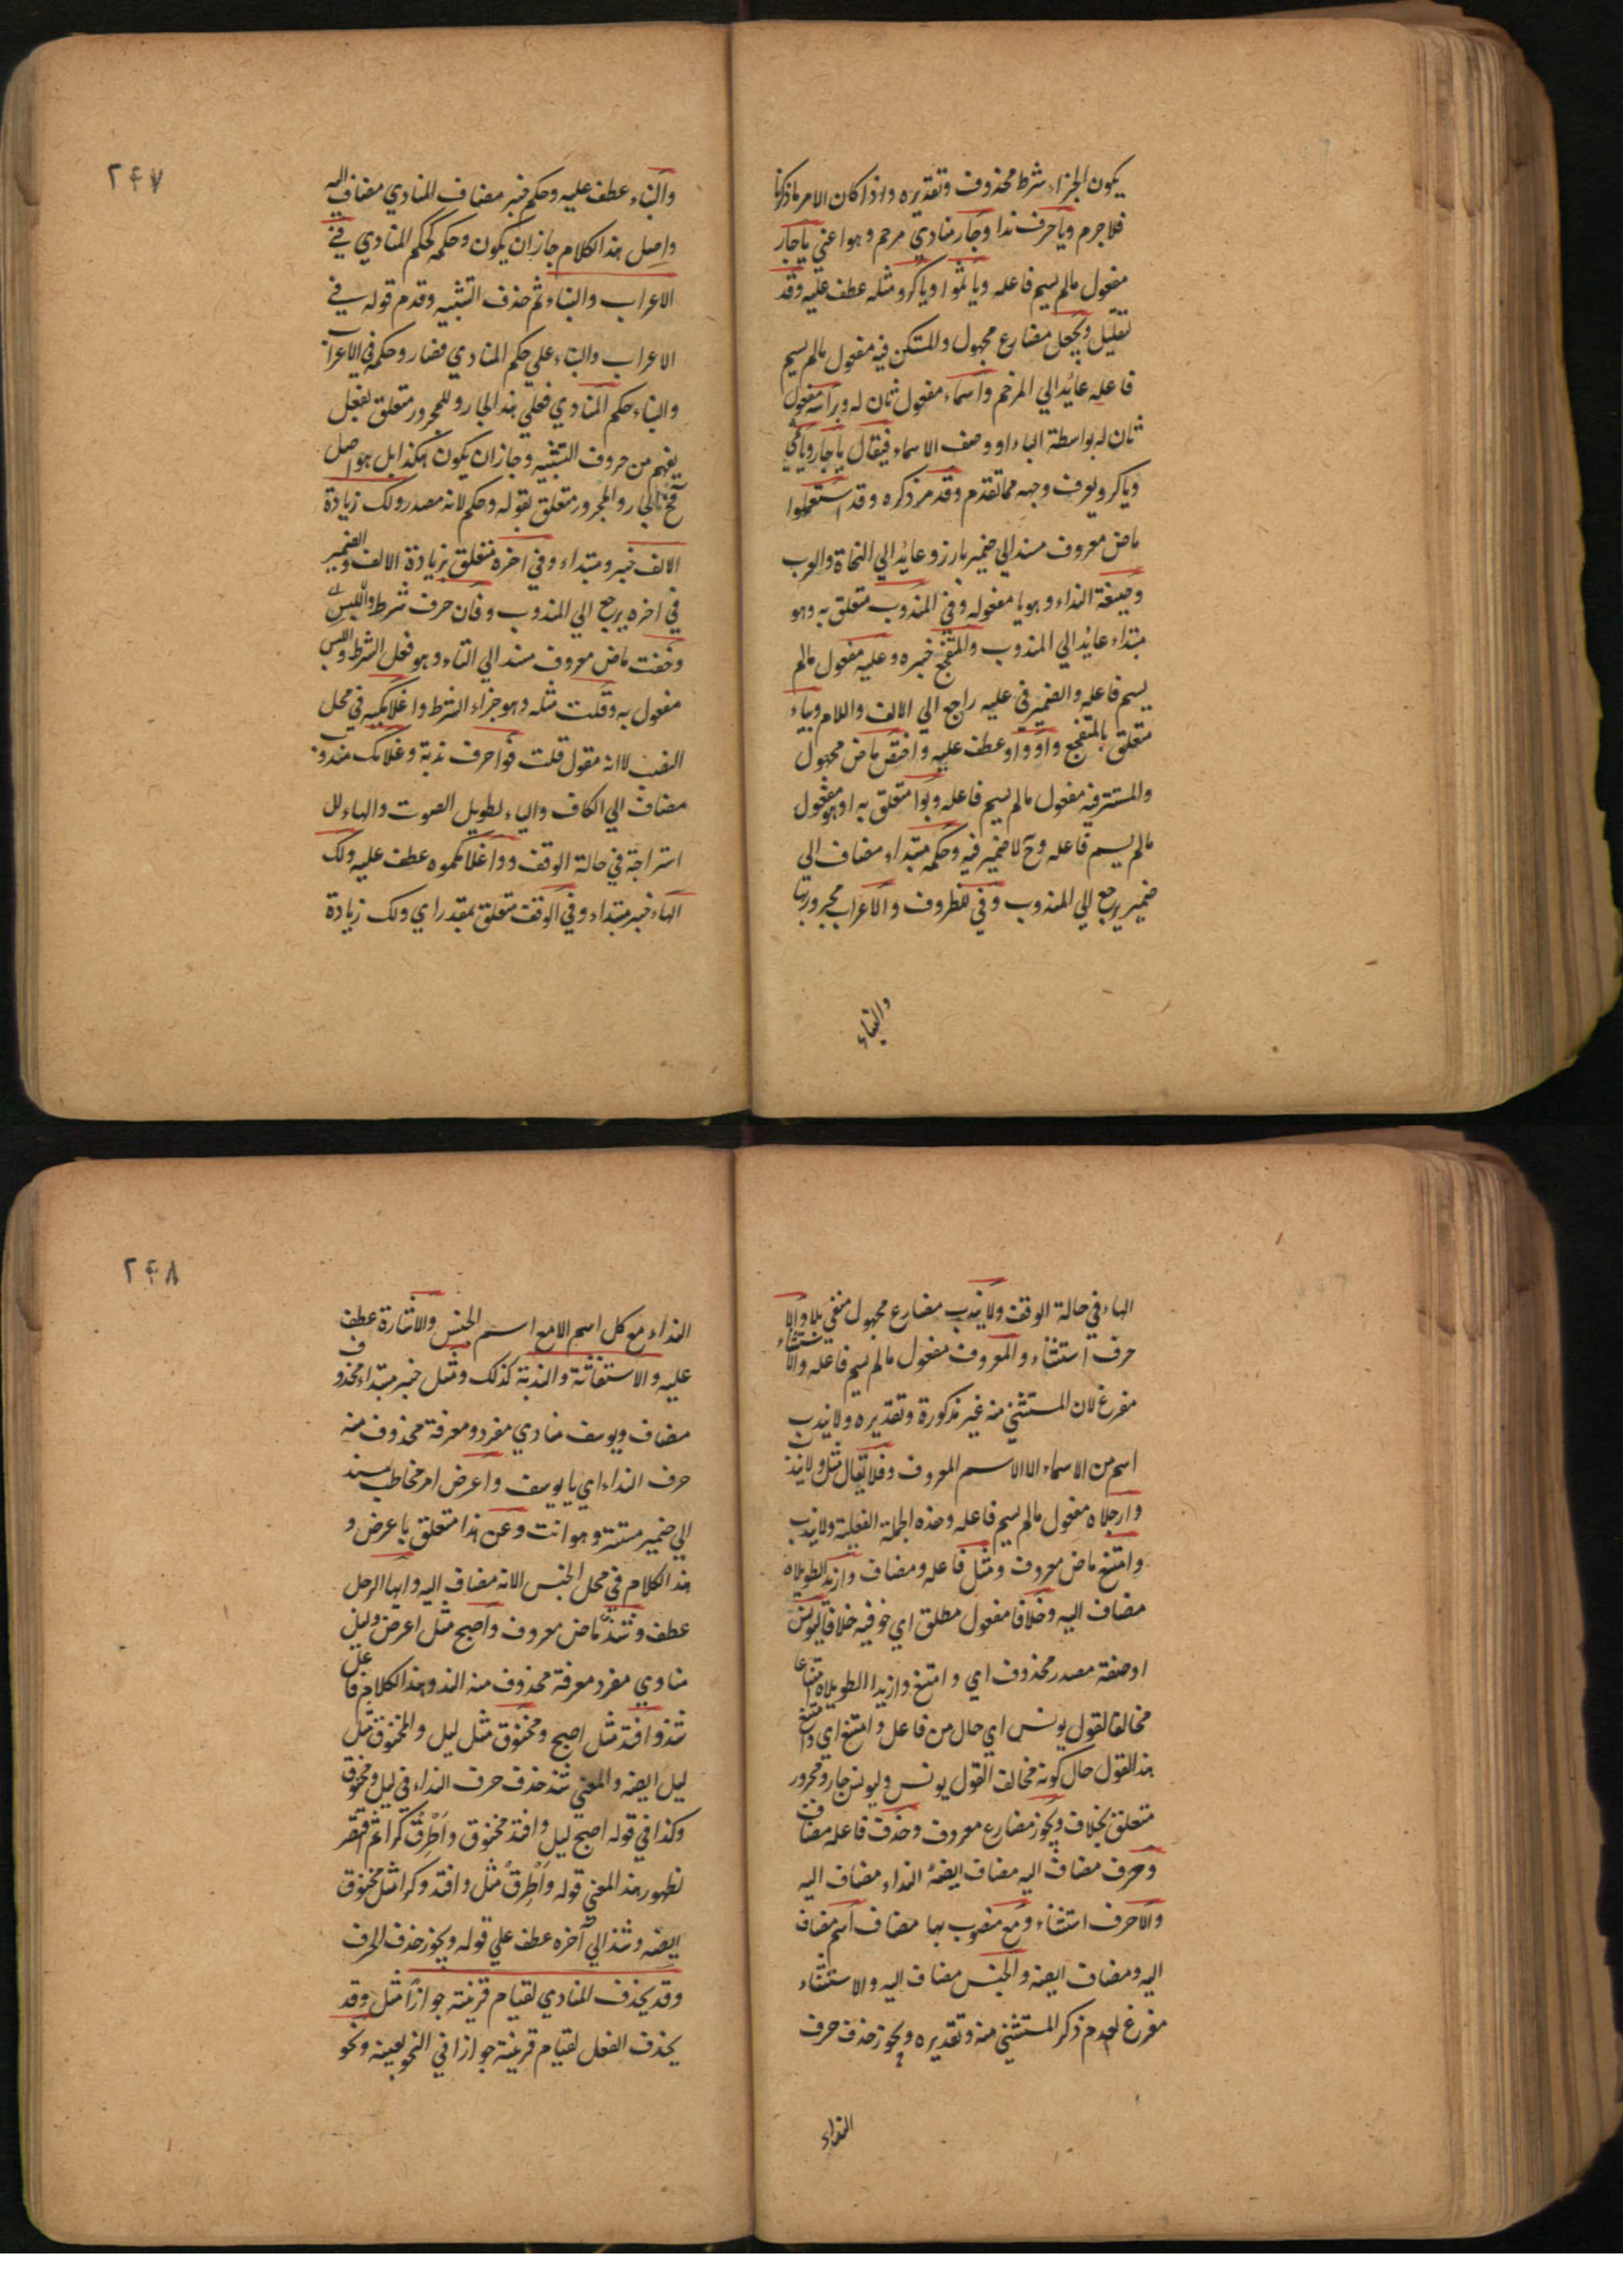 يكون الجزاء شرط محذوف وتقديره واذا كان الامر ما ذكرنا
فلا جرم ويا حرف ندا وجار منادي مرخم وهو اعني يا جار
مفعول مالم يسم فاعله ويا ثمو ويا كرو مثله عطف عليه وقد
تقليل ويجعل مضارع مجهول والمستكن فيه مفعول مالم يسم
فاعله عايد الي المرخم واسماء مفعول ثان له وبراسه مفعول
ثان له بواسطة الباء او وصف الاسماء فيقال يا جار ويا ثمي
ويا كرو يعرف وجهه مما تقدم وقد مر ذكره وقد استعملوا
ماض معروف مسند الي ضمير بارز وعايد الي النحاة والعرب
وصيغة النداء وهو يا مفعوله وفي المندوب متعلق به وهو
مبتداء عايد الي المندوب والمتفجع خبره وعليه مفعول مالم
يسم فاعله والضمير في عليه راجع الي الالف واللام وبياء
متعلق بالمتفجع واو واو عطف عليه واختص ماض مجهول
والمستتر فيه مفعول مالم يسم فاعله وبوا متعلق به او هو مفعول
مالم يسم فاعله وح لا ضمير فيه وحكمه مبتداء مضاف الي
ضمير يرجع الي المندوب وفي للظروف والاعراب مجرور بها
والبناء
٢٤٧
والبناء عطف عليه وحكم خبر مضاف المنادي مضاف اليه
واصل هذا الكلام جاز ان يكون وحكمه كحكم المنادي في
الاعراب والبناء ثم حذف التشبيه وقدم قوله في
الاعراب والبناء علي حكم المنادي فصار وحكمه في الاعراب
والبناء حكم المنادي فعلي هذا الجار والمجرور متعلق بفعل
يفهم من حروف التشبيه وجاز ان يكون هكذا بل هو اصل
فح الجار والمجرور متعلق بقوله وحكم لانه مصدر ولك زيادة
الالف خبر ومبتداء وفي اخره متعلق بزيادة الالف والضمير
في اخره يرجع الي المندوب وفان حرف شرط واللبس
وخفت ماض معروف مسند الي التاء وهو فعل الشرط واللبس
مفعول به وقلت مثله وهو جزاء الشرط واغلامكيه في محل
النصب لانه مقول قلت فوا حرف ندبة وغلامك مندوب
مضاف الي الكاف والياء لطويل الصوت والهاء لل
استراحة في حالة الوقف وواغلامكموه عطف عليه ولك
الهاء خبر مبتداء وفي الوقف متعلق بمقدر اي ولك زيادة
الهاء في حالة الوقف ولا يندب مضارع مجهول منفي بلا والا
حرف استثناء والمعروف مفعول مالم يسم فاعله والاستثناء
مفرغ لان المستثني منه غير مذكورة وتقديره ولا يندب
اسم من الاسماء الا الاسم المعروف وفلا يقال مثل ولا يندب
وارجلاه مفعول مالم يسم فاعله وهذه الجملة الفعلية ولا يندب
وامتنع ماض معروف ومثل فاعله ومضاف وازيد الطويلاه
مضاف اليه وخلافا مفعول مطلق اي خولف فيه خلافا ليونس
او صفة مصدر محذوف اي وامتنع وازيدا الطويلاه امتناعا
مخالفا لقول يونس اي حال من فاعل وامتنع اي وامتنع
هذا القول حال كونه مخالف القول يونس وليونس جار ومجرور
متعلق بخلاف ويجوز مضارع معروف وحذف فاعله مضاف
وحرف مضاف اليه مضاف ايضه النداء مضاف اليه
والا حرف استثناء ومع منصوب بها مضاف اسم مضاف
اليه ومضاف ايضه والجنس مضاف اليه والاستثناء
مفرغ لعدم ذكر المستثني منه وتقديره ويجوز حذف حرف
النداء
٢٤٨
النداء مع كل اسم الا مع اسم الجنس والاشارة عطف
عليه والاستغاثة والندبة كذلك ومثل خبر مبتداء محذوف
مضاف ويوسف منادي مفرد ومعرفة محذوف منه
حرف النداء اي يا يوسف واعرض امر مخاطب مسند
الي ضمير مستتر وهو انت وعن هذا متعلق باعرض و
هذا الكلام في محل الجنس الانه مضاف اليه وايها الرجل
عطف وشذ ماض معروف واصبح مثل اعرض وليل
منادي مفرد معرفة محذوف منه الندو هذا الكلام فاعل
شذ وافتد مثل اصبح ومخنوق مثل ليل والمخنوق مثل
ليل ايضه والمعني شذ حذف حرف النداء في ليل ومخنوق
وكذا في قوله اصبح ليل وافتد مخنوق واطرق كرا ثم اقتصر
لظهور هذا المعني قوله واطرق مثل وافتد وكرا مثل مخنوق
ايضه وشذ الي آخره عطف علي قوله ويجوز حذف الحرف
وقد يحذف المنادي لقيام قرينة جوازا مثل وقد
يحذف الفعل لقيام قرينة جوازا في النحو بعينه ونحو